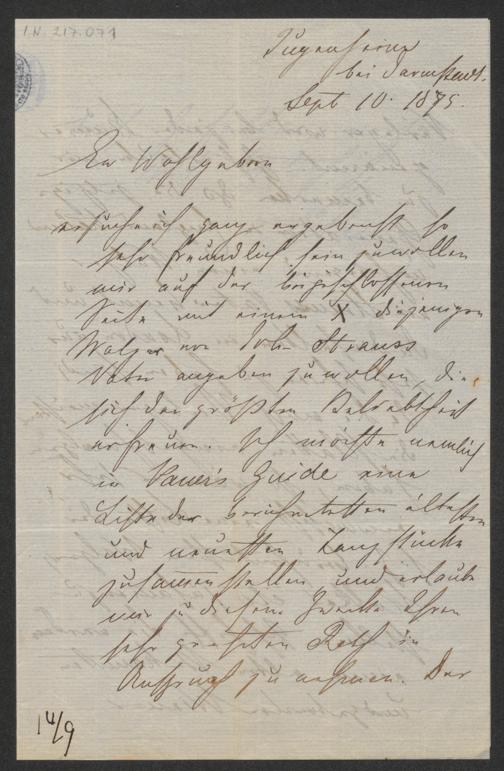 I.N. 217.071
Jugenheim
bei Darmstadt.
Sept 10. 1875.
Ew Wohlgeboren
ersuche ich ganz ergebenst, so
sehr freundlich sein zu wollen
mir auf der beigeschlossenen
Seite mit einem X diejenigen
Walzer von Joh. Strauss
Vater angeben zu wollen, die
sich der größten Beliebtheit
erfreuen. Ich möchte nemlich
in Pauer's Guide eine
Liste der berühmtesten ältesten
und neuesten Tanzstücke
zusammenstellen, und erlaube
mir zu diesem Zwecke Ihren
sehr geehrten Rath in
Anspruch zu nehmen. Der
14/9